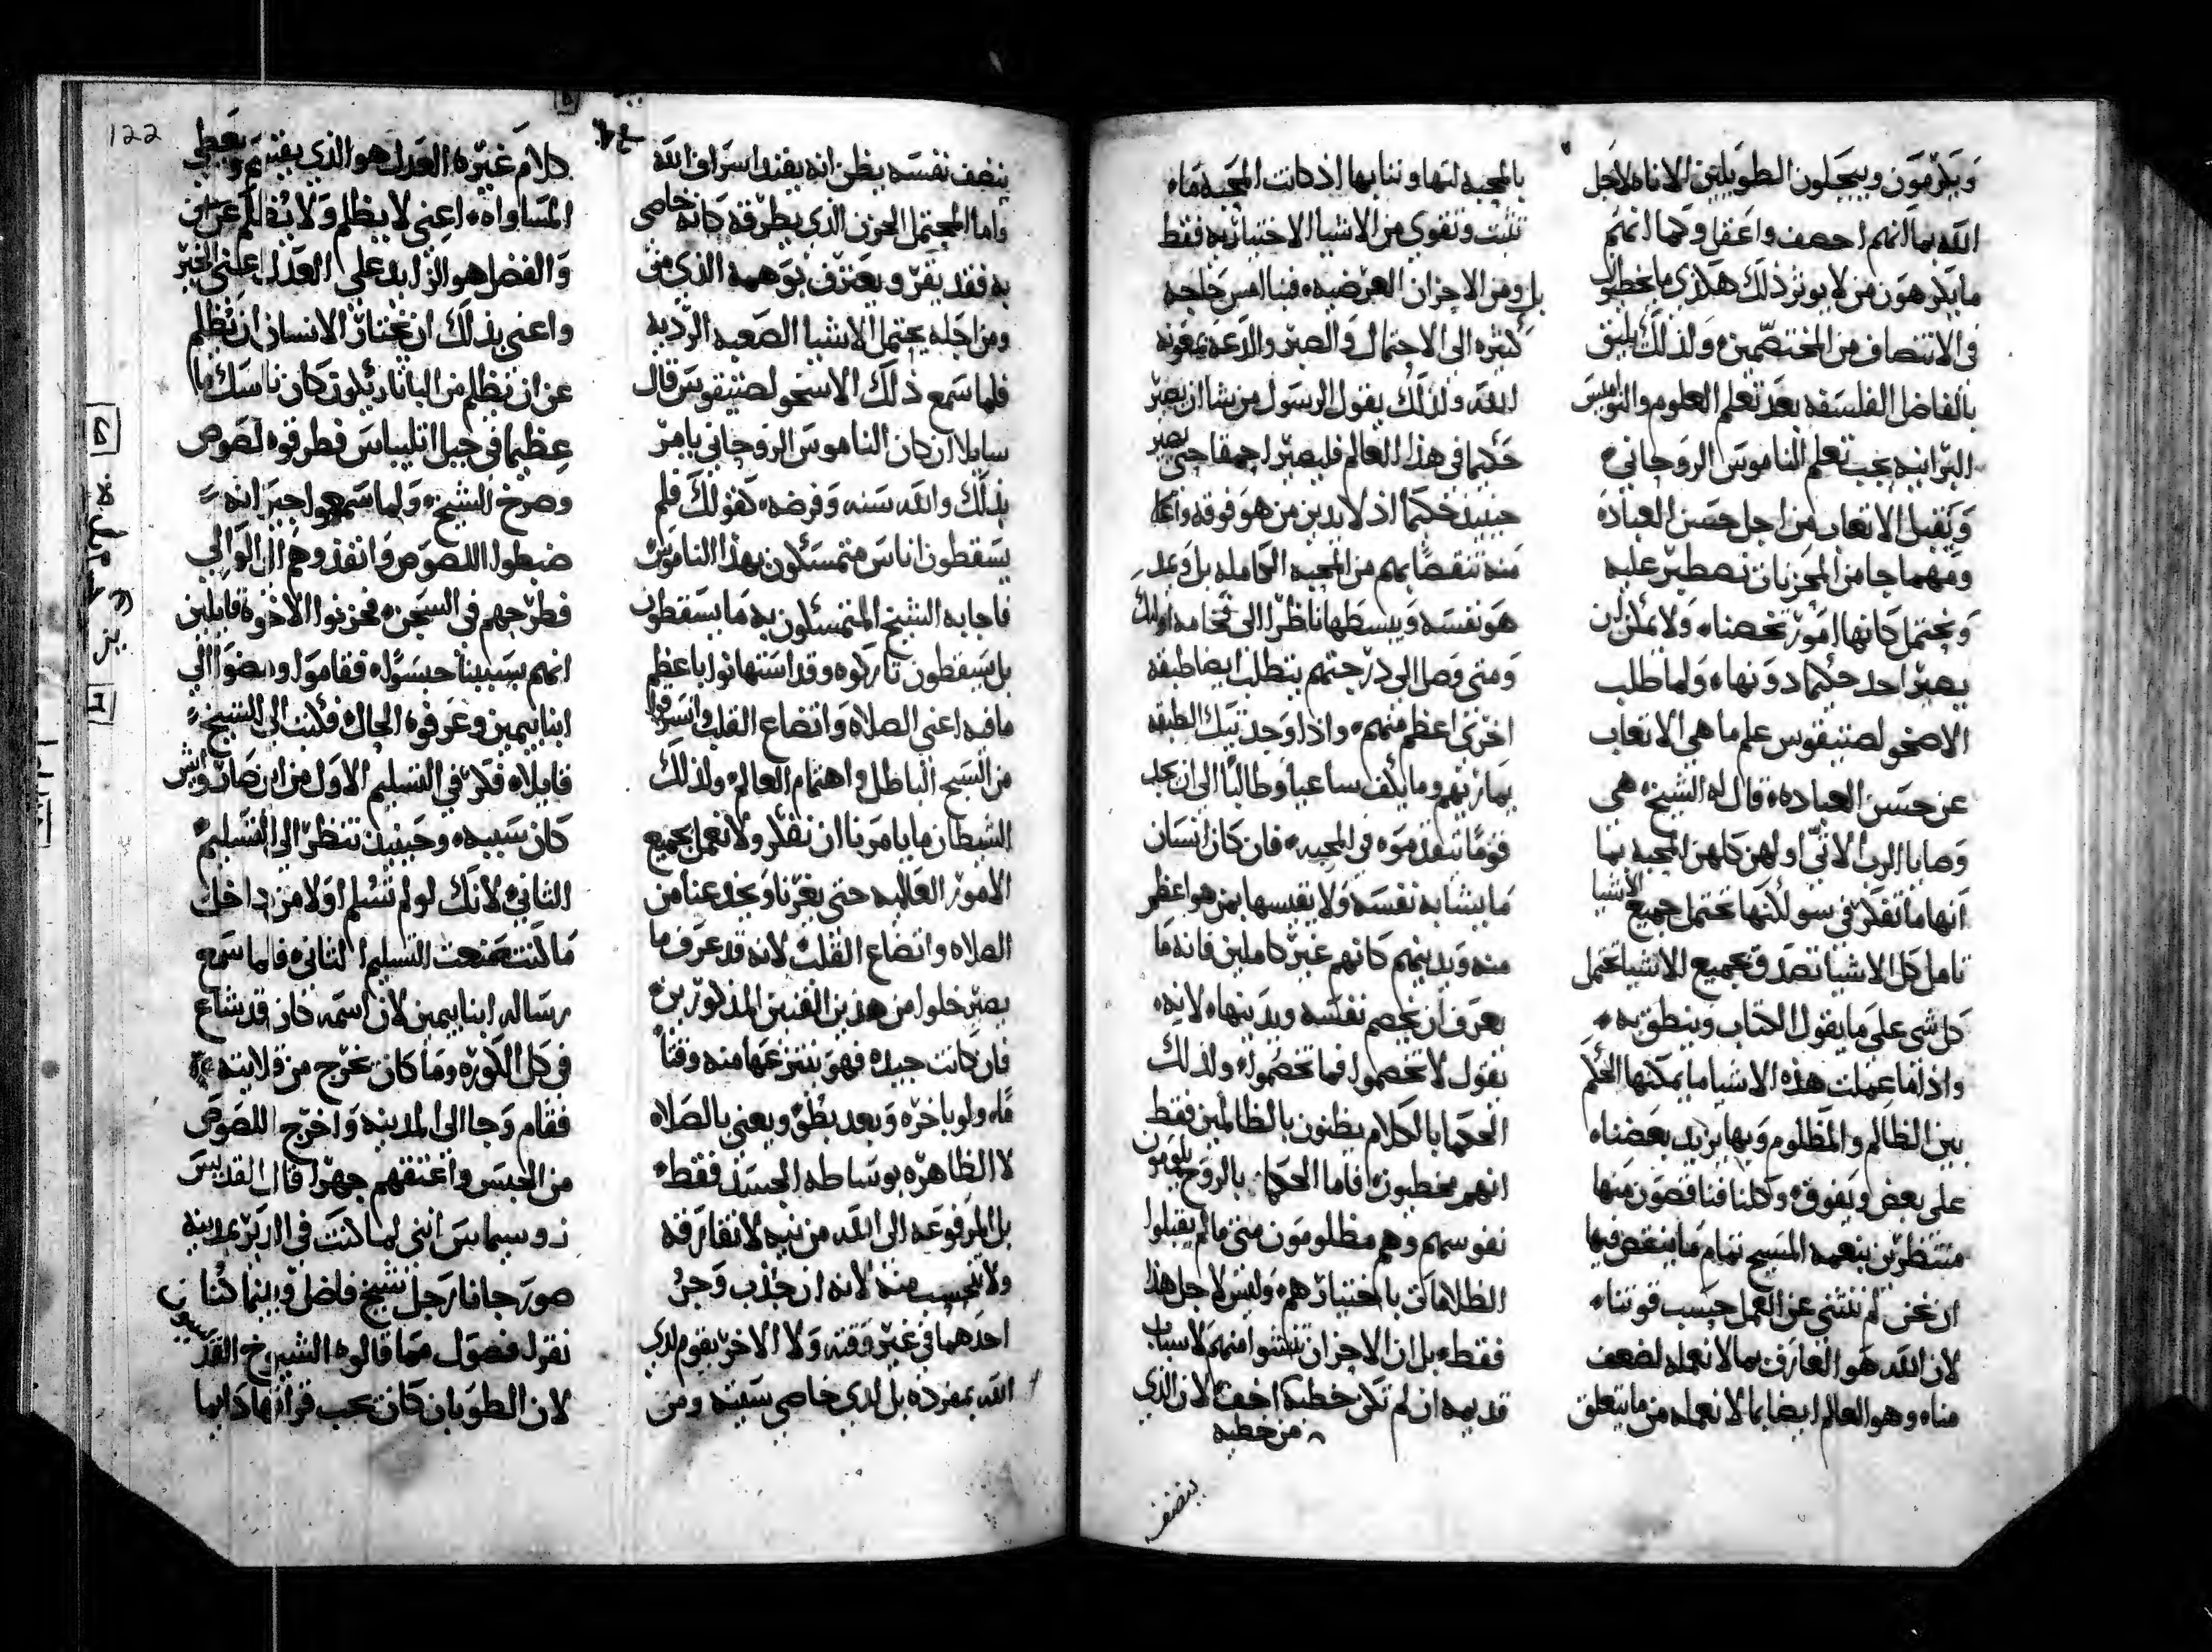 ويكرمون ويبجلون الطويلين الاناه لاجل
الله بما انهم احصف واعقل وكما انهم
ما يكرهون من لا يوثر ذلك هكذى ما يخطون
فى الانتصاف من المختصمين ولذلك يليق
بالفاضل الفلسفه بعد تعلم العلوم والنواميس
البرانيه يجب تعلم الناموس الروحاني
ويقبل الاتعاب من اجل حسن العباده
ومهما جا من المحزنات نصطبر عليه
ونحتمل كانها امور تخصنا ولا يمكن ان
يصير احد حكيما دونها ولما طلب
الاسخولصتيقوس علم ما هي الاتعاب
عن حسن العباده قال له الشيخ هي
وصايا الرب الاتي اولهن كلهن المحبه بما
انها ما تفكر في سو لكنها تحتمل جميع الاشيا
تامل كل الاشيا تصدق بجميع الاشيا تحتمل
كل شي على ما يقول الكتاب وينطق به
واذا ما عملت هذه الاشيا ما يمكنها الحكم
بين الظالم والمظلوم وبها يزيد بعضنا
على بعض ويفوق وكلنا فناقصون منها
منتظرين بنعمه المسيح تمام ما ينقص فيها
ان نحن لم ننثني عن العمل حسب قوتنا
لان الله هو العارف بما لا نعمله لضعف
منا وهو العالم ايضا بما لا نعمله من ما يتعلق
بالمحبه لها وثنايها اذ كانت المحبه ما
تثبت وتقوي من الاشيا الاختياريه فقط
بل ومن الاحزان العرضيه فبنا امس حاجه
كثيره الى الاحتمال والصبر والدعه بمعونه
الله ولذلك يقول الرسول من شا ان يصير
حكيما فى هذا العالم فليصير احمقا حتى يصير
حينيذ حكيما اذ لا يدين من هو فوقه وانما
منه تنقصا بهم من المحبه الكامله بل ويمد
هو نفسه ويبسطها ناظرا الى فخامه اوليك
ومتى وصل الى درجتهم يتطلب ايضا طبقه
اخرى اعظم منهم واذا وجد تيك الطبقه
بمازيهم وما يكف ساعيا وطالبا الى ان يجد
قوما تقدموه في المحبه فان كان انسان
ما يشابه نفسه ولا يقيسها بمن هو اعظم
منه ويدينهم كانهم غير كاملين فانه ما
يعرف ان يخصم نفسه ويدينها لانه
يقول لا تخصموا فما تخصموا ولذلك
الحكما بالكلام يظنون بالظالمين فقط
انهم مخطيون فاما الحكما بالروح يلومون
نفوسهم وهم مظلومون متى ما لم يقبلوا
الظلامات باختيارهم وليس لاجل هذا
فقط بل ان الاحزان تنشوا منهم لاسباب
قديمه ان لم تكن خطيه اخف لان الذي
من خطيه
ينصف
ينصف نفسه يظن انه يفند اسراف الله
واما المحتمل الحزن الذي يطرقه كانه خاصى
به فقد يقر ويعترف بوهمه الذي من
ومن اجله يحتمل الاشيا الصعبه الرديه
فلما سمع ذلك الاسخولصتيقوس قال
سايلا ان كان الناموس الروحاني يامر
بذلك والله سنه وفرضه كقولك فلم
يسقطون اناس متمسكون بهذا الناموس
فاجابه الشيخ المتمسكون به ما يسقطون
بل يسقطون تاركوه وقد استهانوا باعظم
ما فيه اعني الصلاه واتضاع القلب وانسرقوا
من السبح الباطل واهتمام العالم ولذلك
الشيطان ما يامرنا ان نفكر ولا نعمل بجميع
الامور العالميه حتى يغرنا ويخدعنا من
الصلاه واتضاع القلب لانه قد عرف ما
يصير خلوا من هذين الفنين المذكورين
فان كانت جيده فهو ينتزعها منه وقتا
ما ولو باخره وبعد بطو ويعني بالصلاه
لا الظاهره بوساطه الجسد فقط
بل المرفوعه الى الله من نيه لا تفارقه
ولا تحسب منه لانه ان جذب وجر
احدهما في غير وقته ولا الاخر يقوم لدي
الله بمفرده بل لدي خاصي سيته ومن
122
كلام غيره العدل هو الذي يقتني ويعطي
المساواه اعني لا يظلم ولا يظلم عن من
والفضل هو الزايد على العدل اعني الخير
واعني بذلك ان يختار الانسان ان يظلم
عن ان يظلم من البا ثاديكون كان ناسك ما
عظيما في جبل اتليباس فطرقوه لصوص
وصرخ الشيخ ولما سمعوا جيرانه
ضبطوا اللصوص وانفذوهم الى الوالي
فطرحهم في السجن فحزنوا الاخوة قايلين
انهم بسببنا حبسوا فقاموا ومضوا الي
انبا بيمين وعرفوه الحال فكتب الى الشيخ
قايلا فكر في التسليم الاول من اين صار وايش
كان سببه وحينيذ تنظر الى التسليم
الثاني لانك لو لم تسلم اولا من داخل
ما كنت صنعت التسليم الثاني فلما سمع
رساله انبا بيمين لان اسمه كان قد شاع
في كل الكوره وما كان يخرج من قلايته
فقام وجا الى المدينه واخرج اللصوص
من الحبس واعتقهم جهرا قال القديس
زوسيماس انني لما كنت في الدير بمدينه
صور جانا رجل شيخ فاضل وبينما كنا
نقول فصول مما قالوه الشيوخ القديسون
لان الطوبان كان يحب قراتها دايما